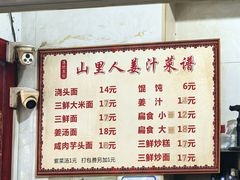 山里人姜汁菜谱
浇头面 14元
三鲜大米面 17元
三鲜面 17元
姜汤面 18元
咸肉芋头面 18元
紫菜汤1元 打包费另加1元
馄饨 6元
姜汁 18元
扁食 小 12元
扁食 大 18元
三鲜炒糕 17元
三鲜炒面 17元